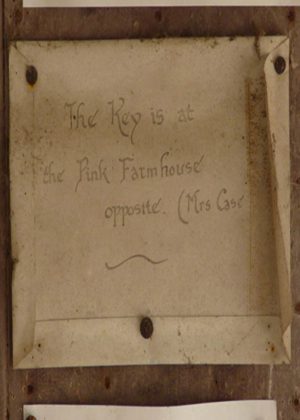 The Key is at
the Pink Farmhouse
opposite. (Mrs Case